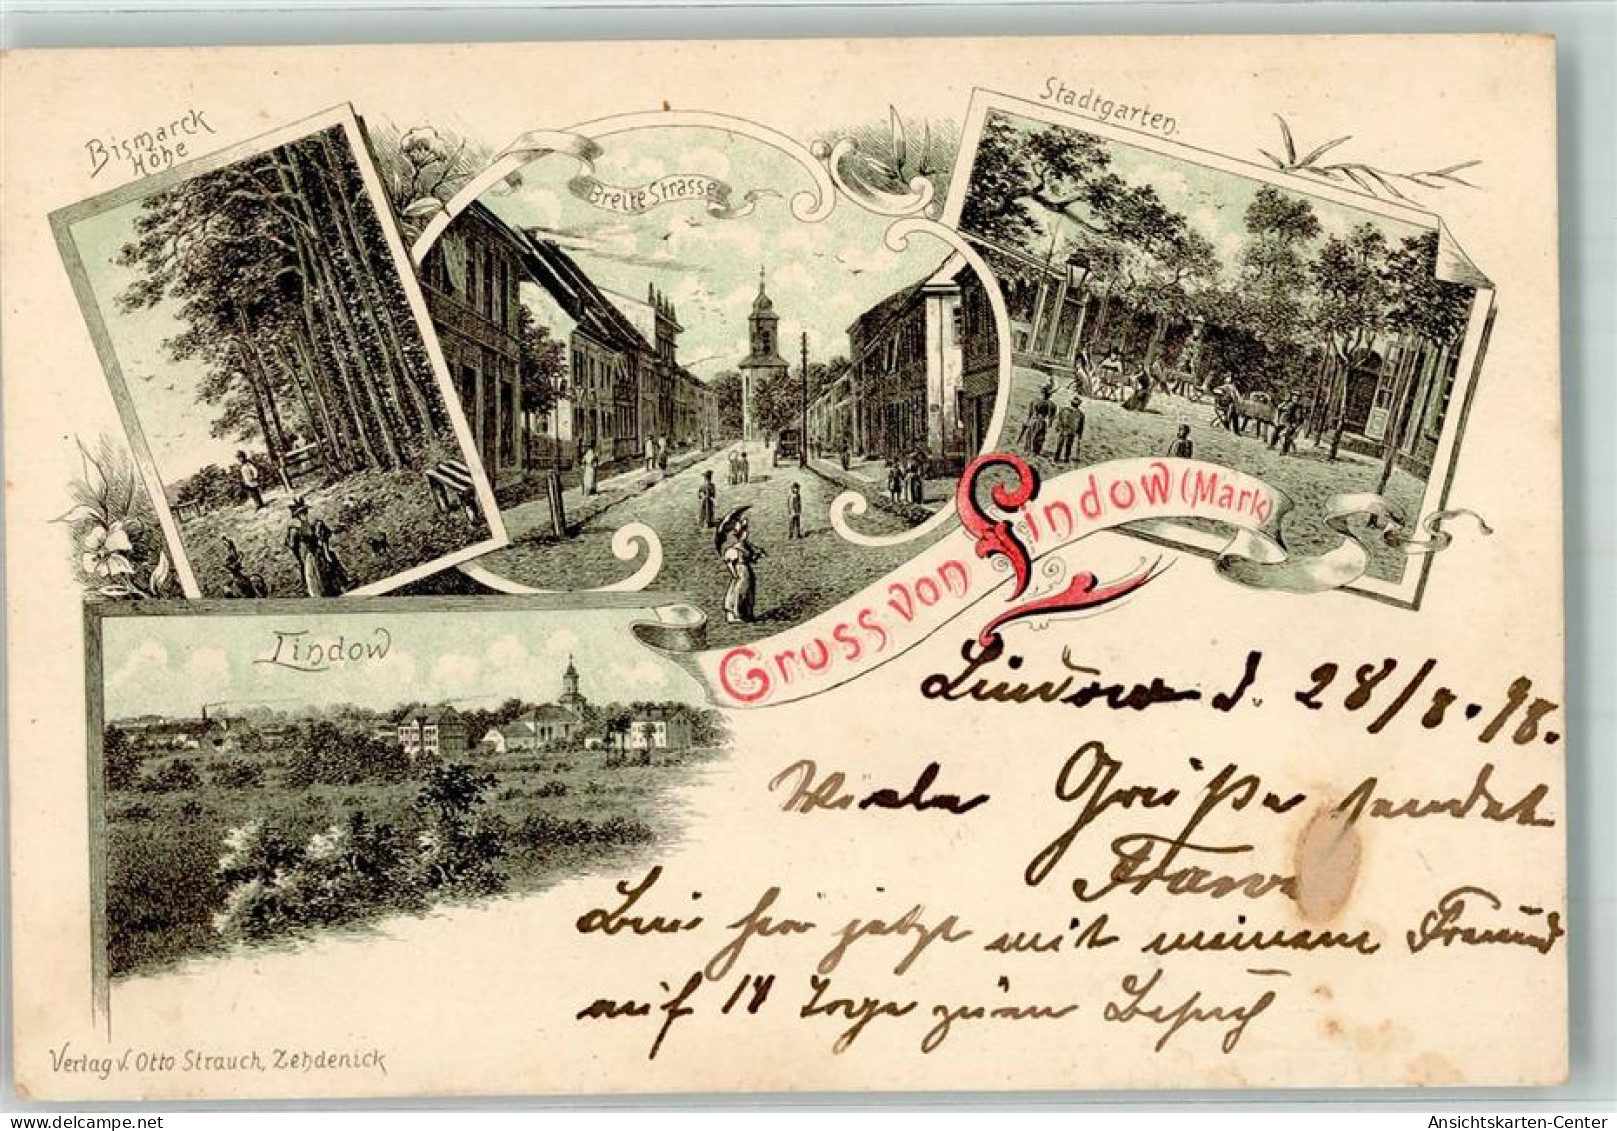 Bismarck
Höhe
Breite Strasse
Stadtgarten.
Gruss von Lindow (Mark)
Lindow
Lindow d. 28/8.98.
Viele Grüße sendet
Franz
Bin hier jetzt mit meinem Freund
auf 14 Tage zum Besuch
Verlag v. Otto Strauch, Zehdenick
Ansichtskarten-Center